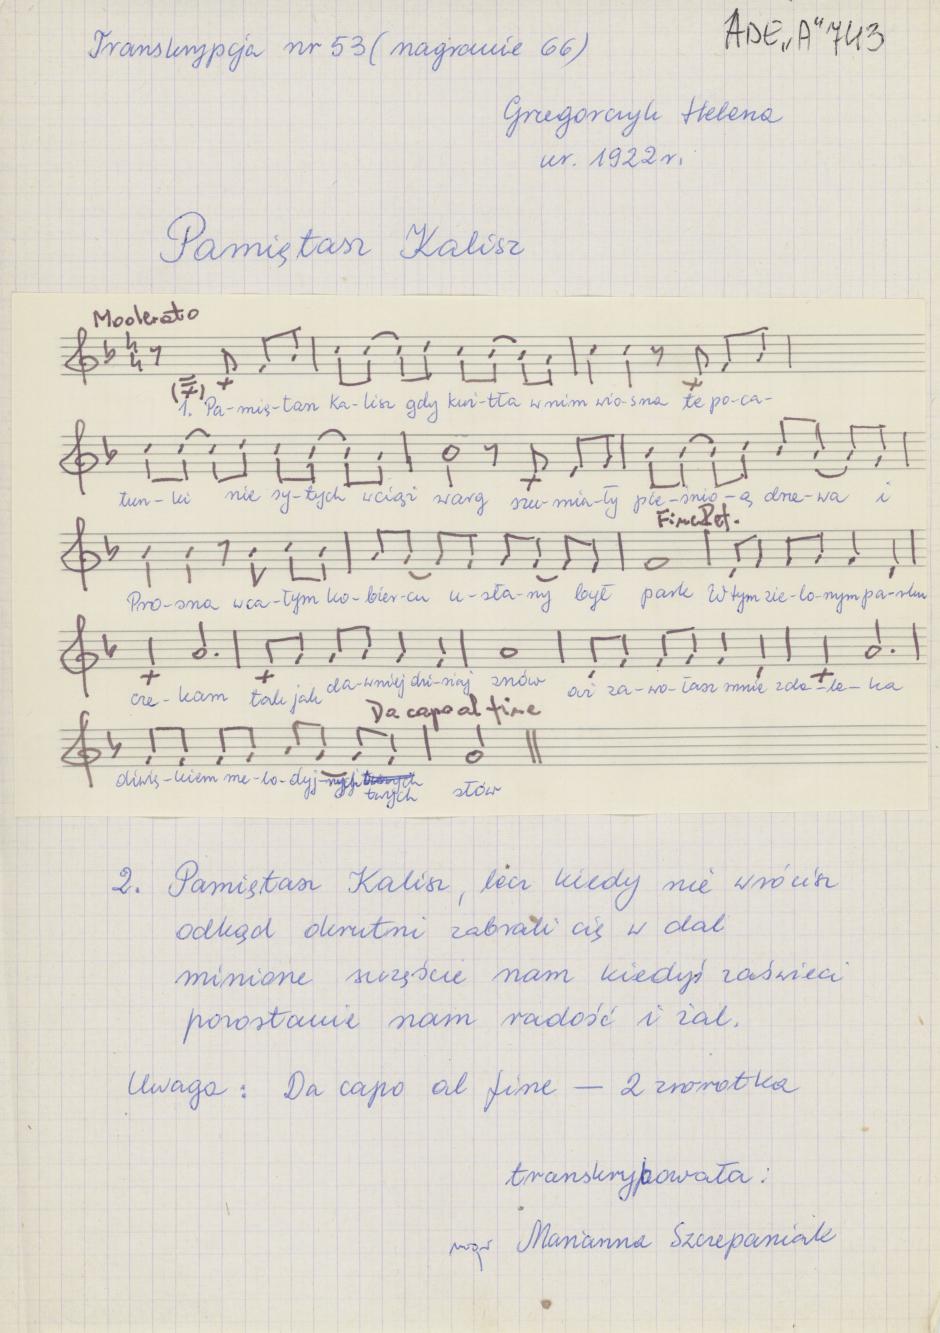 ADE „A" 743
Transkrypcja nr 53 (nagranie 66)
Gregorczyk Helena
ur. 1922 r.
Pamiętasz Kalisz
Moderato
1. Pa-mię-tasz Ka-lisz gdy kwi-tła w nim wio-sna te po-ca-
łun-ki nie sy-tych wciąż warg szu-mia-ły pie-śnio-ą drze-wa i
Fine Ref.
Pro-sna w ca-łym ko-bier-cu u-sła-ny był park W tym zie-lo-nym pa-rku
cze-kam tak jak da-wniej dzi-siaj znów aż za-wo-łasz mnie zda-le-ka
Da capo al fine
dźwię-kiem me-lo-dyj-nych twych słów
2. Pamiętasz Kalisz, lecz kiedy nie wrócisz
odkąd okrutni zabrali cię w dal
minione szczęście nam kiedyś zaświeci
pozostanie nam radość i żal.
Uwaga: Da capo al fine — 2 zwrotka
transkrybowała:
mgr Marianna Szczepaniak